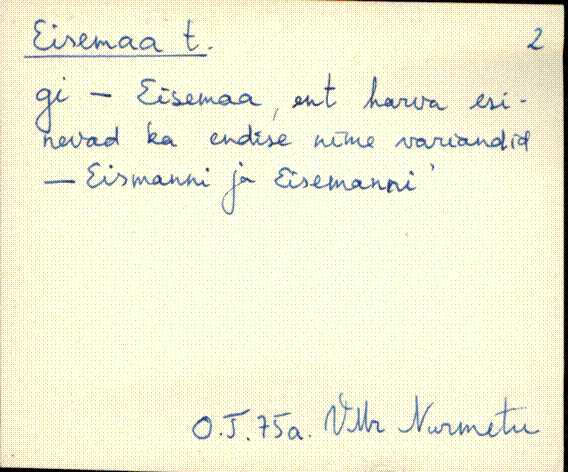 Eisemaa t. 2
gi - Eisemaa, ent harva esi-
nevad ka endise nime variandid
— Eismanni ja Eisemanni'
O.J. 75a. VMr Nurmetu